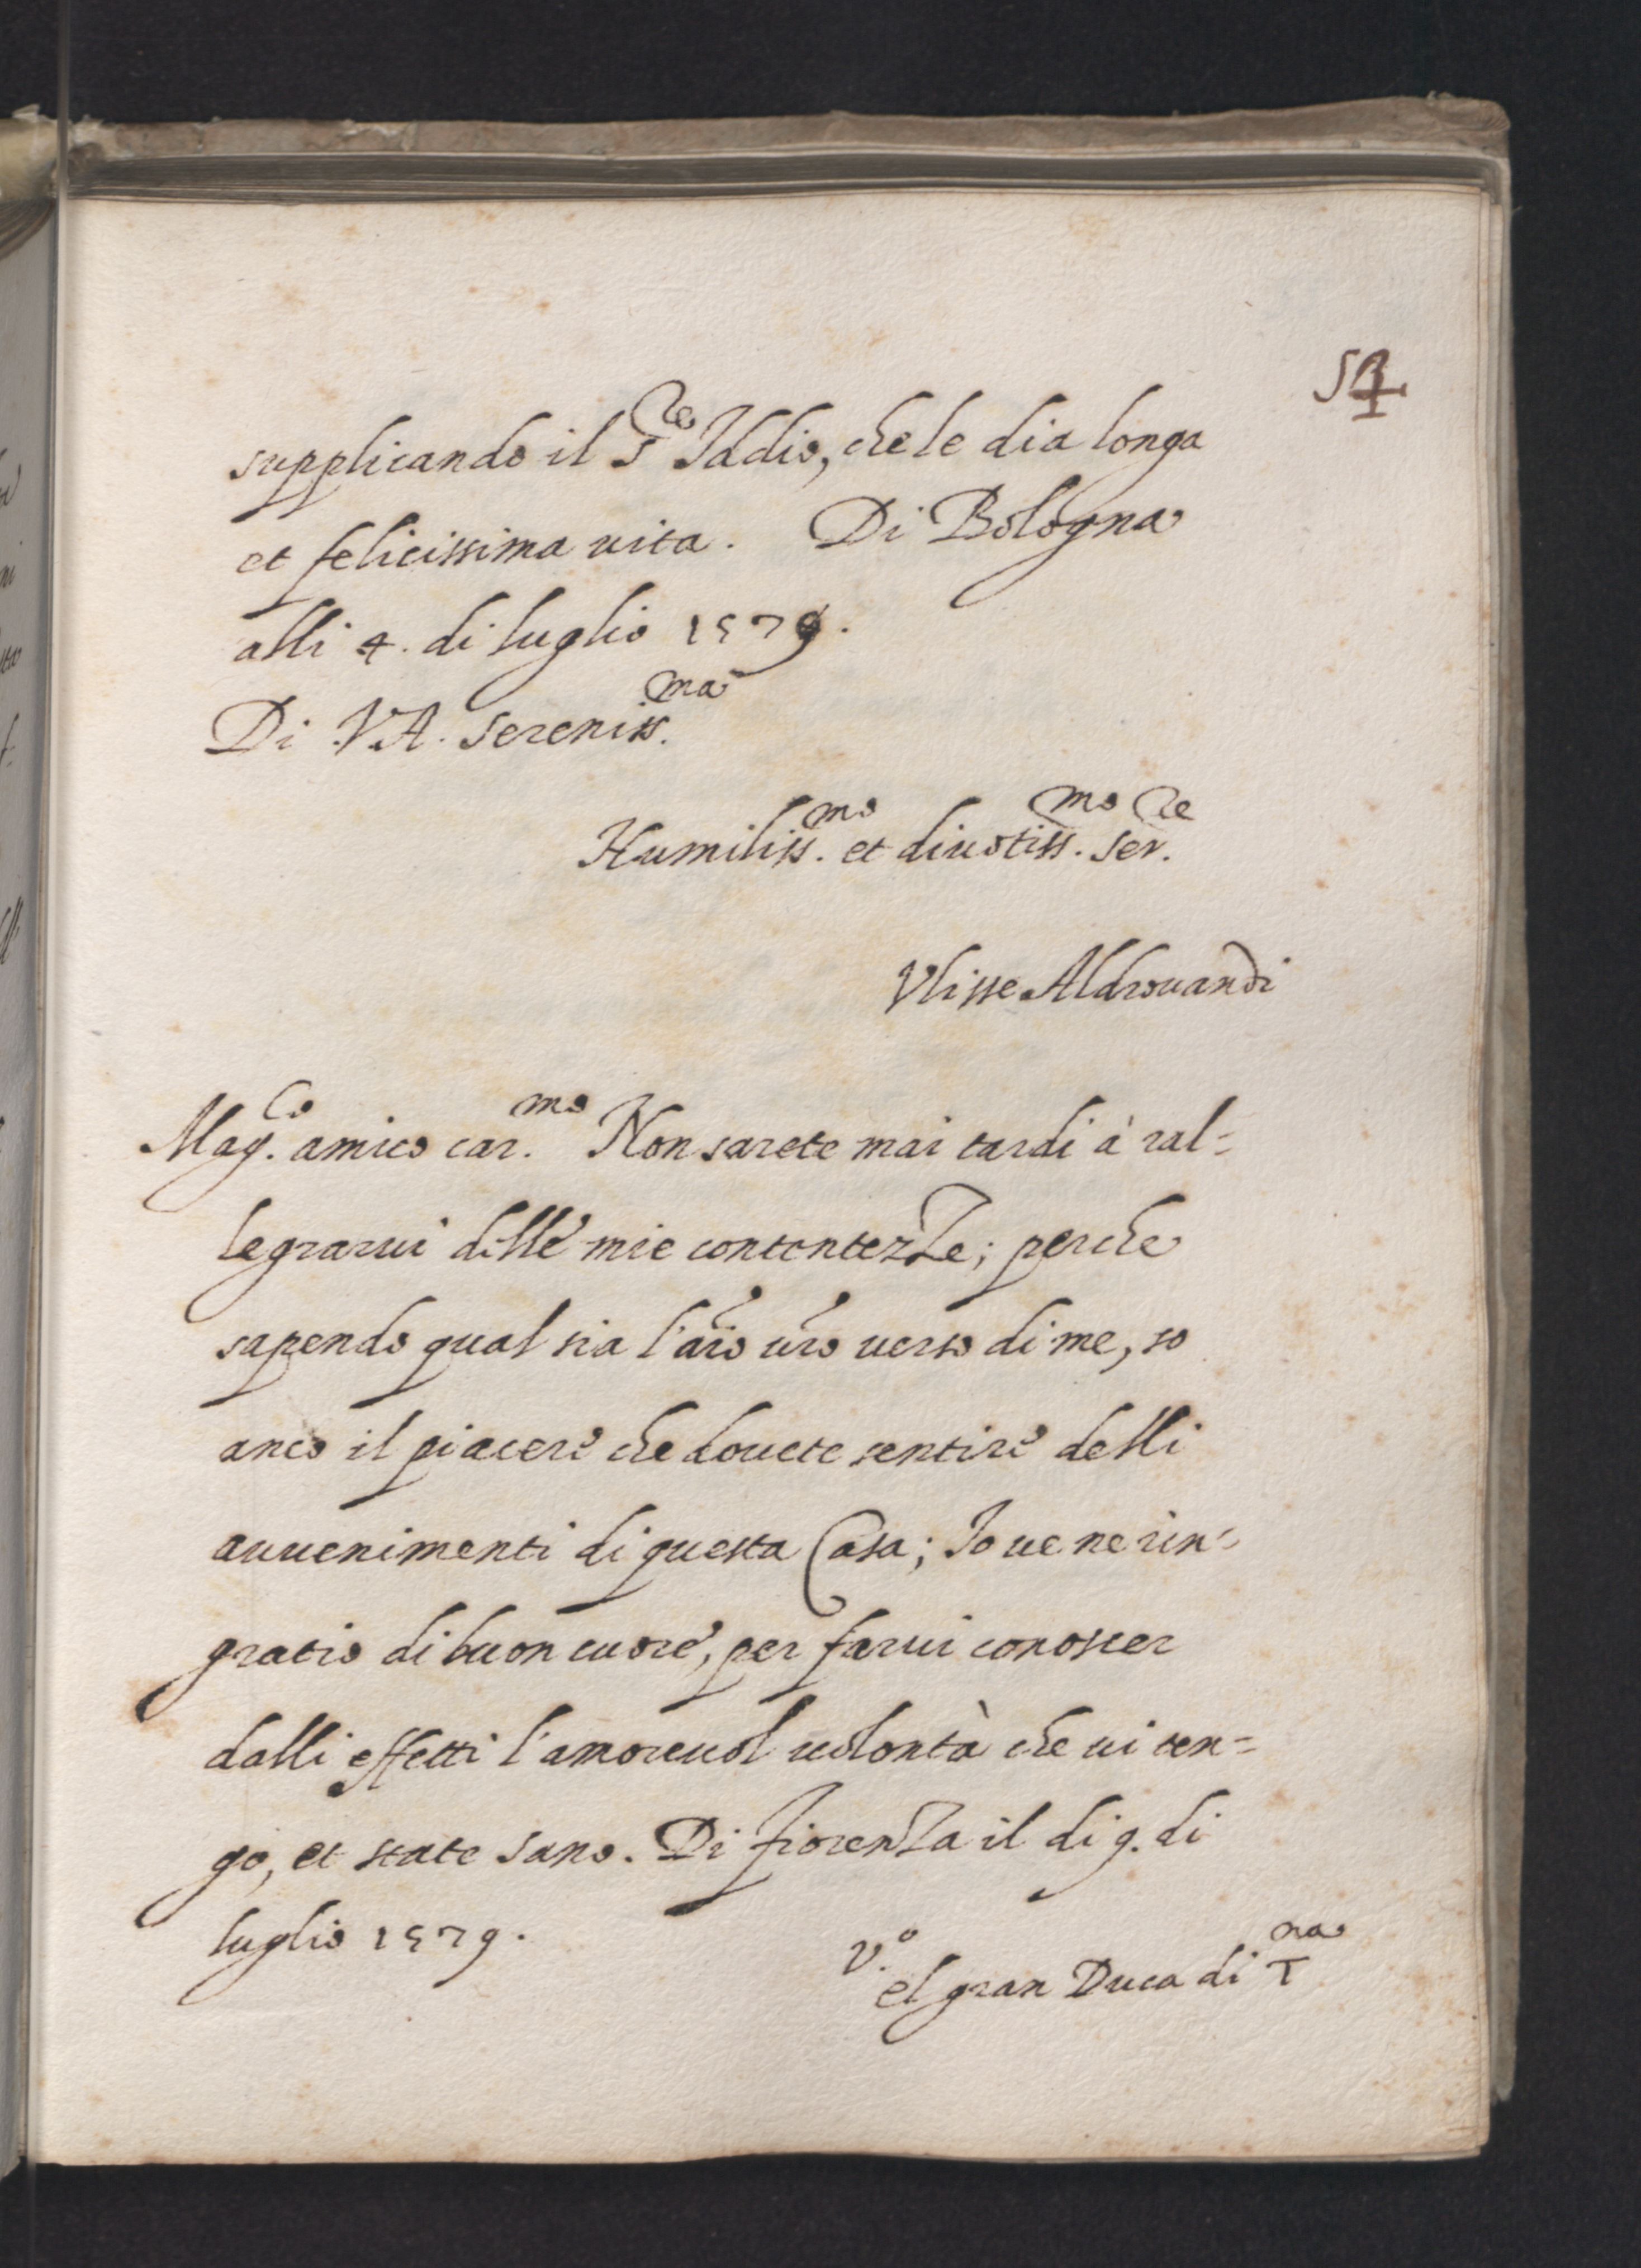 54
supplicando il S.re Iddio, che le dia longa
et felicissima uita. Di Bologna
alli 4. di luglio 1579.
Di V.A. Sereniss.ma
Humiliss.mo et diuotiss.mo Ser.re
Vlisse Aldrouandi
Mag.co amico car.mo Non sarete mai tardi à ral=
legrarui delle mie contentezze; perche
sapendo qual sia l'aĩo ur̃o uerso di me, so
anco il piacere che douete sentire delli
auuenimenti di questa Casa; Io ue ne rin=
gratio di buon cuore, per farui conoscer
dalli effetti l'amoreuol uolontà che ui ten=
go, et state sano. Di fiorenza il di 9. di
luglio 1579.
V.o
el gran Duca di T.na